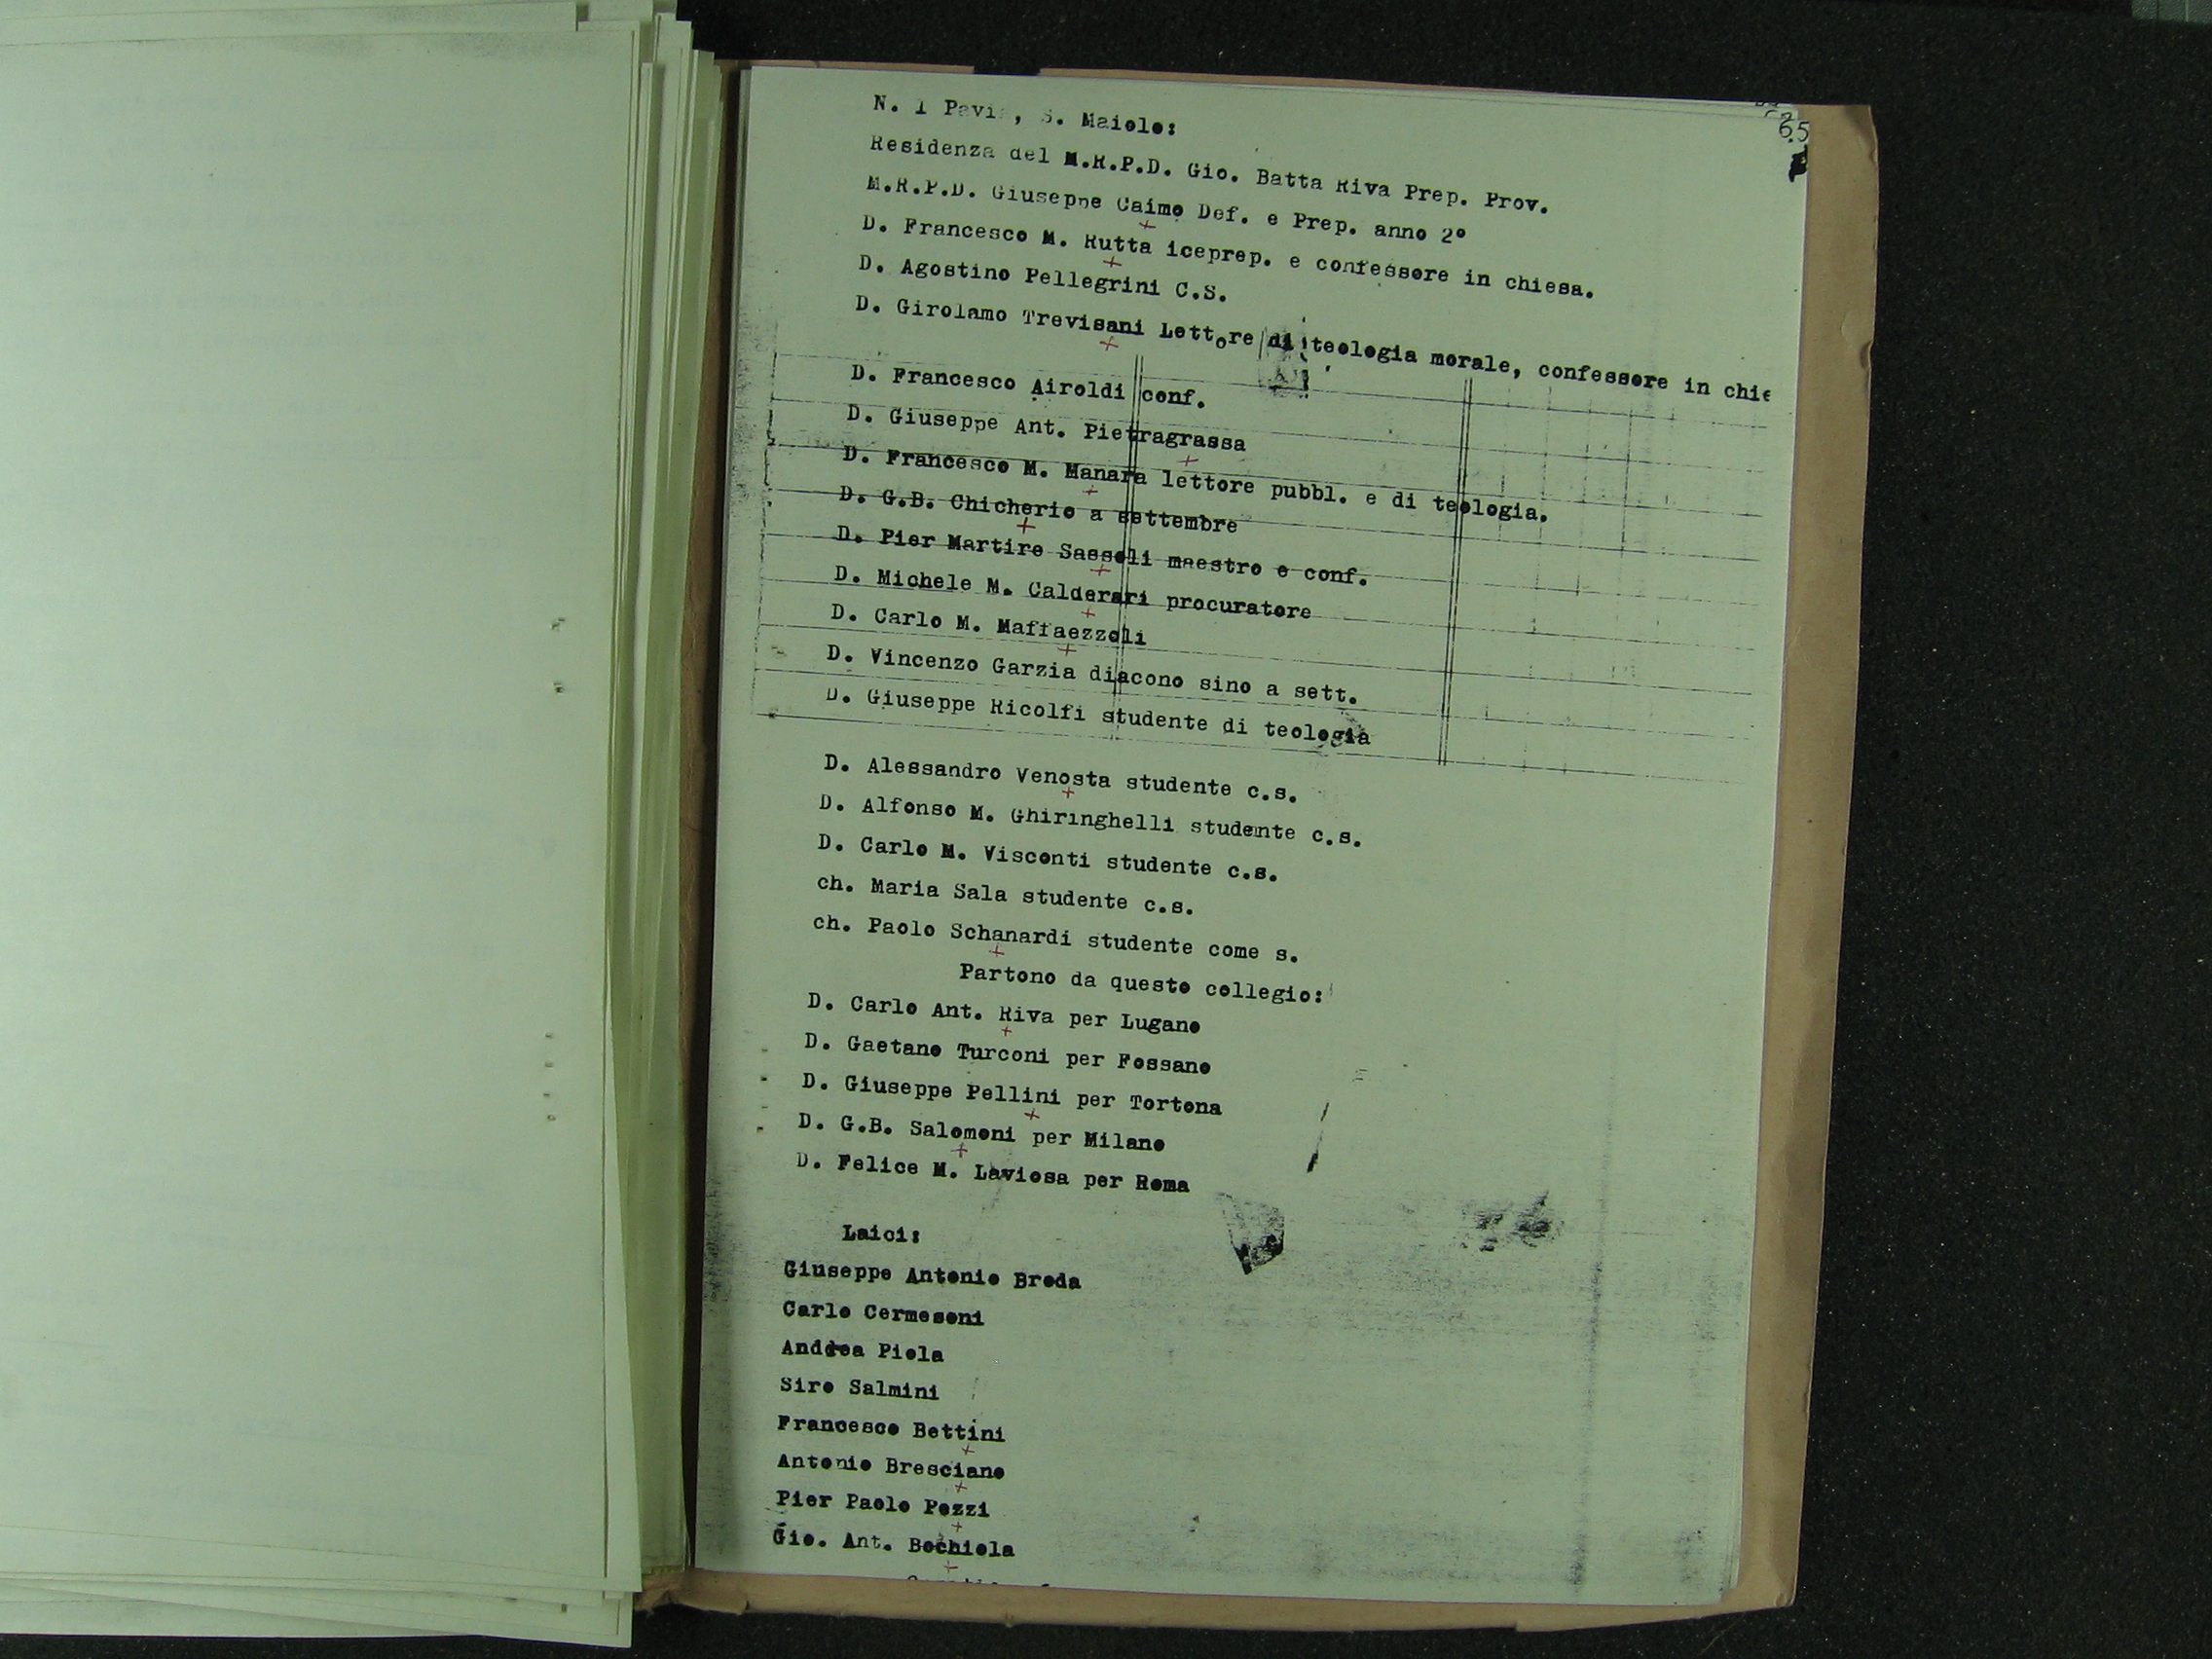 65
N. 1 Pavia, S. Maiolo:
Residenza del M.R.P.D. Gio. Batta Riva Prep. Prov.
M.R.P.D. Giuseppe Caimo Def. e Prep. anno 2º
D. Francesco M. Rutta iceprep. e confessore in chiesa.
D. Agostino Pellegrini C.S.
D. Girolamo Trevisani Lettore di teologia morale, confessore in chie
D. Francesco Airoldi conf.
D. Giuseppe Ant. Pietragrassa
D. Francesco M. Manara lettore pubbl. e di teologia.
D. G.B. Chicherio a settembre
D. Pier Martire Sassoli maestro e conf.
D. Michele M. Calderari procuratore
D. Carlo M. Maffaezzoli
D. Vincenzo Garzia diacono sino a sett.
D. Giuseppe Ricolfi studente di teologia
D. Alessandro Venosta studente c.s.
D. Alfonso M. Ghiringhelli studente c.s.
D. Carlo M. Visconti studente c.s.
ch. Maria Sala studente c.s.
ch. Paolo Schanardi studente come s.
Partono da questo collegio:
D. Carlo Ant. Riva per Lugano
D. Gaetano Turconi per Fossano
D. Giuseppe Pellini per Tortona
D. G.B. Salomoni per Milano
D. Felice M. Laviosa per Roma
Laici:
Giuseppe Antonio Breda
Carlo Cermesoni
Andrea Piola
Siro Salmini
Francesco Bettini
Antonio Bresciano
Pier Paolo Pozzi
Gio. Ant. Bochiola